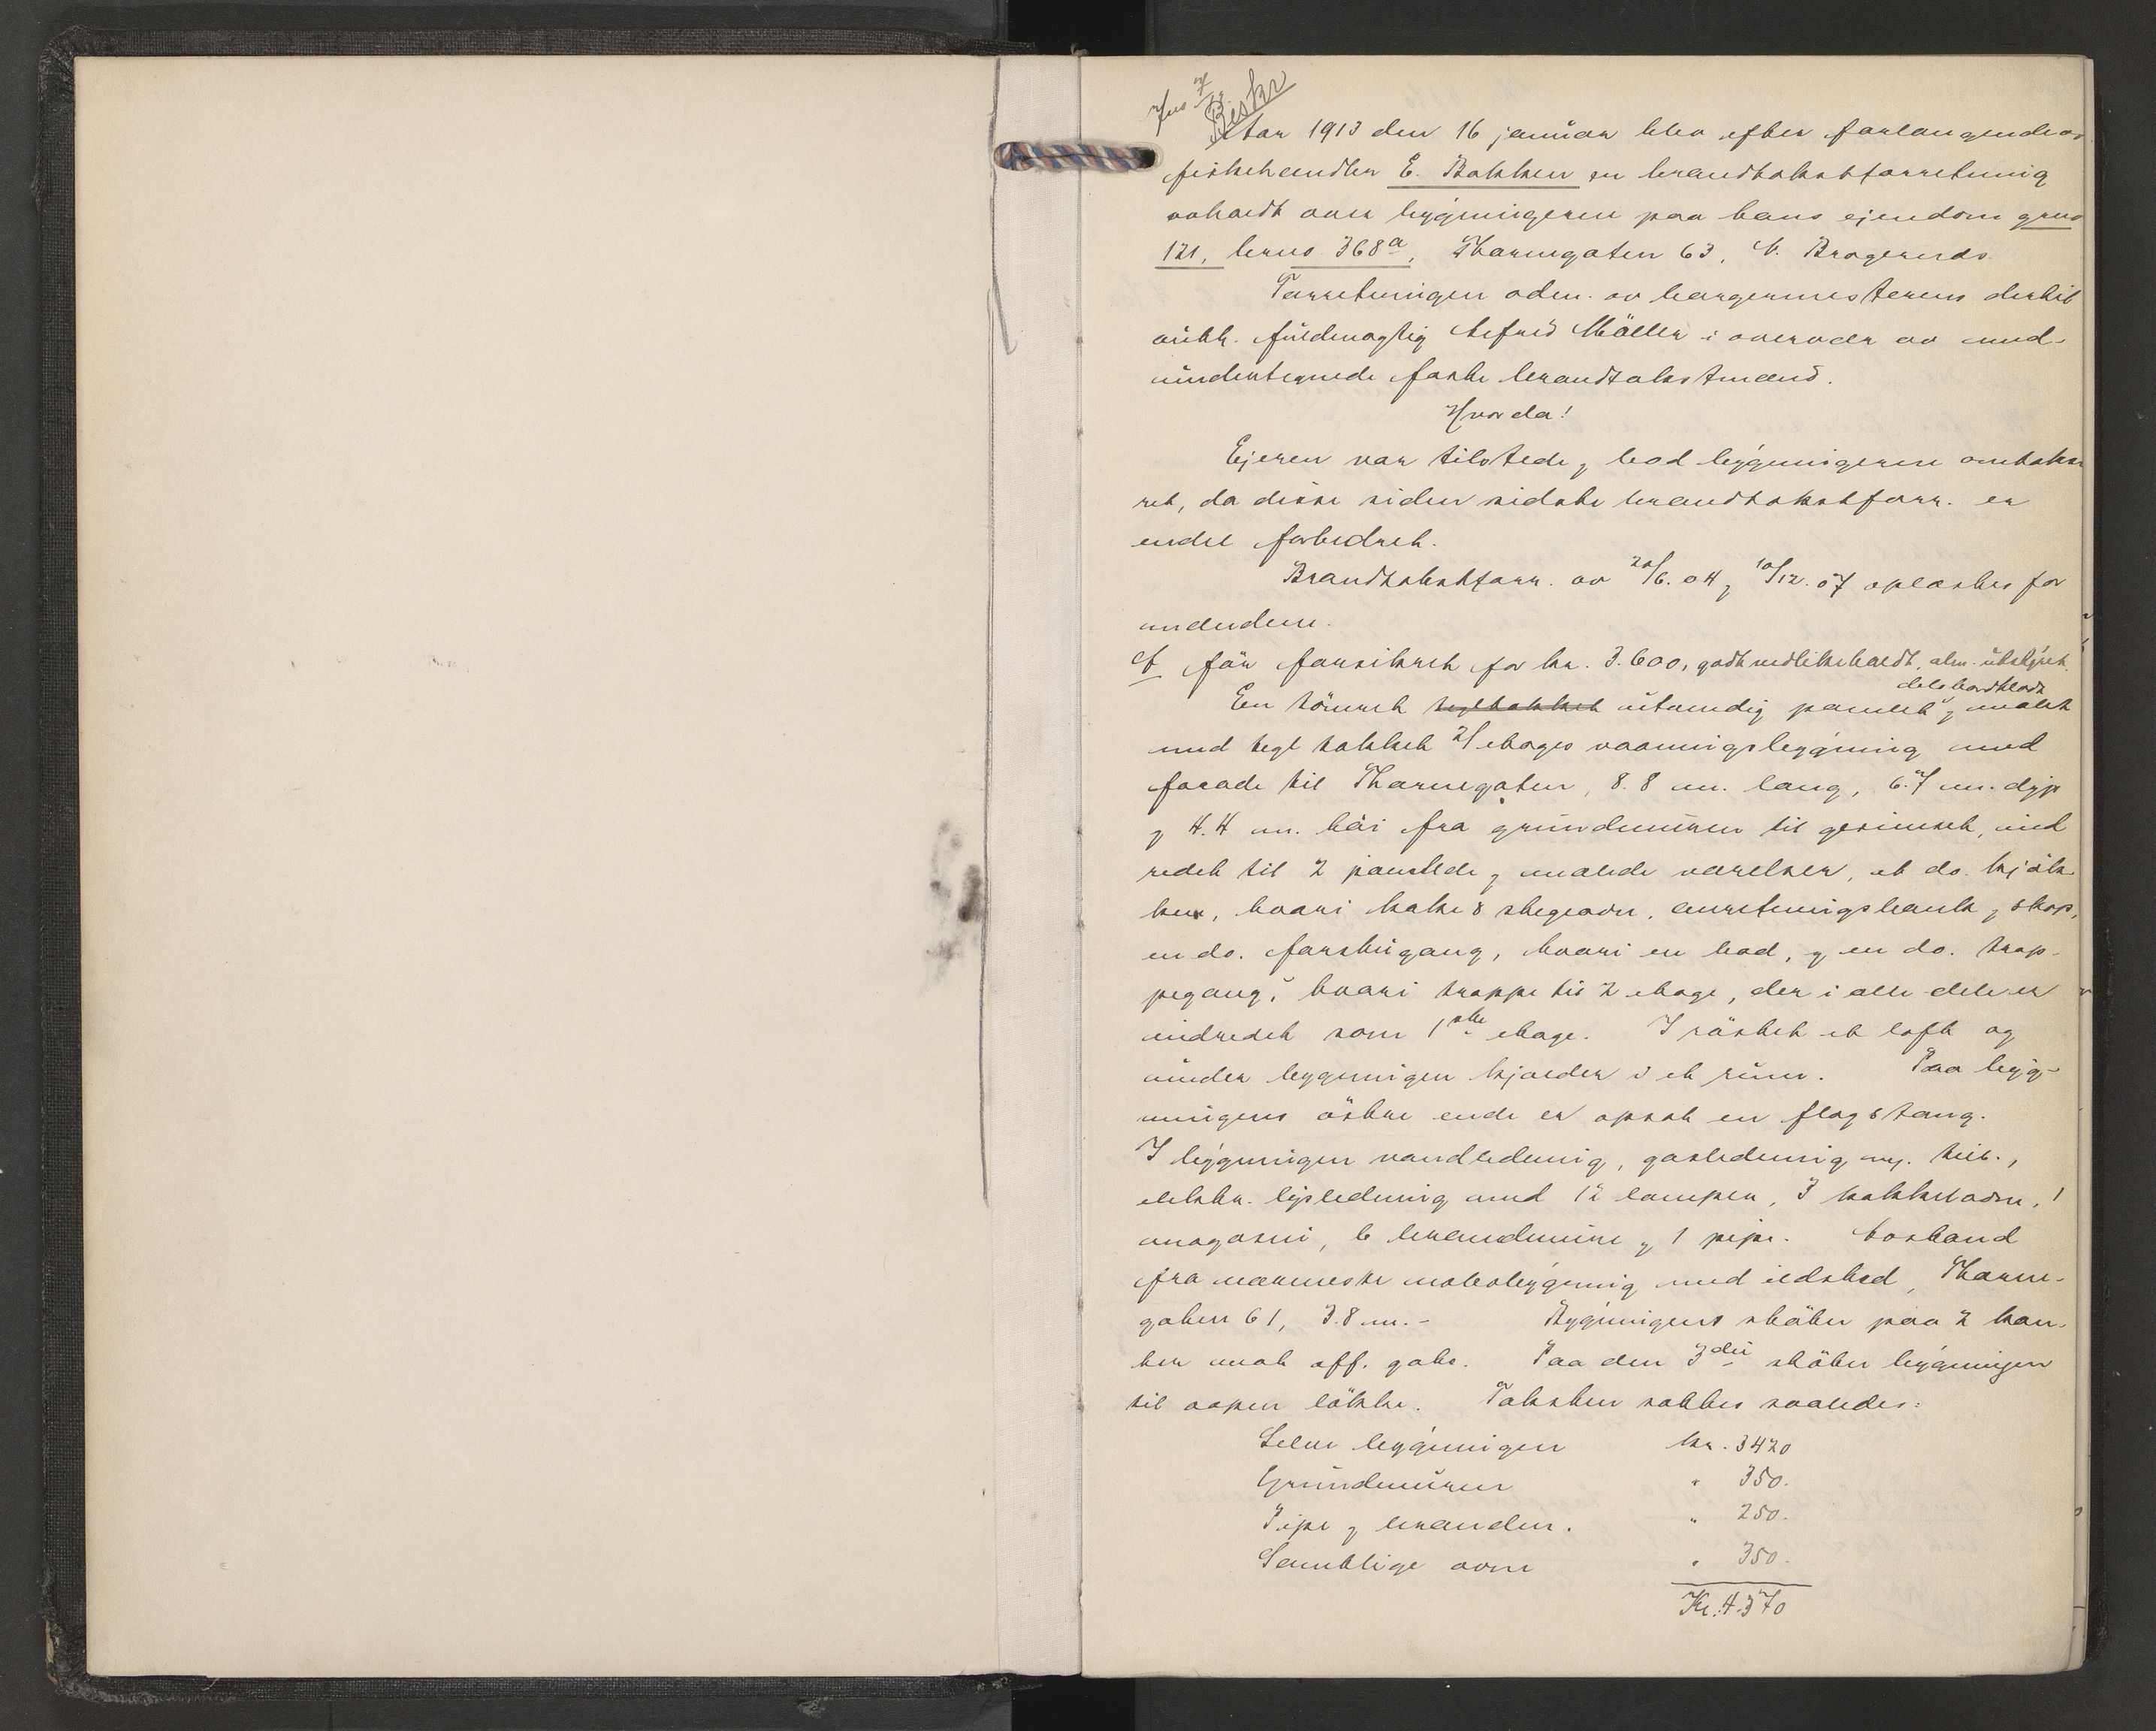 Beskr
Aar 1913 den 16 januar blev efter forlangende av
fiskehandler E. Bakken en brandtakstforretning
avholdt over bygningerne paa hans ejendom grno
121, brno 368a, Thornegaten 63, N. Bragernes.
Forretningen adm. av borgermesterens dertil
auth. fuldmægtig Møller i overvær av med-
undertegnede faste brandtakstmænd.
Hvorda!
Ejeren var tilstede, bad bygningerne omtakse-
ret, da disse siden sidste brandtakstforr. er
endel forbedret.
Brandtakstforr. av 20/6. 04, 10/12. 07 oplæstes for
mændene.
A før forsikret for kr. 3.600, godt vedlikeholdt, alm. utstyret.
delv. bordklædt
En tømret teglhakket utvendig panelet, malet
med tegl takket 2 etages vaaningsbygning med
facade til Thornegaten, 8.8 m. lang, 6.7 m. dyp
og 4.4 m. høi fra grundmuren til gesimset, ind
redet til 2 panelede, malede værelser, et do. kjøk-
ken, hvori kake & stegeovn, anretningsbænk, skap,
en do. forstugang, hvori en bod, og en do. trap-
pegang, hvori trappe til 2 etage, der i alle dele er
indredet som 1ste etage. I røstet et loft og
under bygningen kjælder i et rum. Paa byg-
ningens østre ende er opsat en flagstang.
I bygningen vandledning, gasledning m. tilb.,
elektr. lysledning med 12 lamper, 3 kakkelovne, 1
magasin, 6 brandmure, 1 pipe. Avstand
fra nærmeste nabobygning med ildsted, Thorne-
gaten 61, 3.8 m. - Bygningens støter paa 2 kan-
ter mot off. gate. Paa den 3die støter bygningen
til aapen løkke. Taksten sættes saaledes:
Selve bygningen kr. 3420
Grundmuren " 350.
Pipe, branden. " 250.
Samtlige ovne " 350.
Kr. 4.370